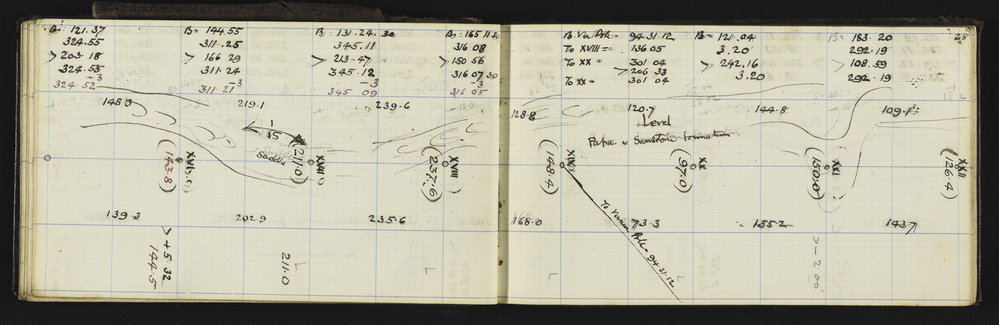 B = 121.37
324.55
> 203.18
324.53
-3
324.52
B = 144.55
311.25
> 166 29
311.24
-3
311 21
B = 131.24.30
345.11
> 213.47
345.12
-3
345 09
316 08
> 150 56
316 07 30
-3
316 05
94 31 12
To XVIII = 136 05
To XX = 301 04
> 206 33
To XX = 301 04
B = 121.04
3.20
> 242,16
3.20
B = 183.20
292.19
> 108.59
292.19
28
148.3
219.1
239.6
128.8
120.7
144.8
109.1
Level
1
15
Saddle
Sandstone formation
(143.8)
(211.0)
XVII
(237.6)
XVIII
(148.4)
XIX
(97.0)
XX
(150.0)
XXI
(126.4)
XXII
139.3
202.9
235.6
168.0
73.3
155.2
143.7
> + 5 32
144.5
211.0
94.31.12
> - 2 00